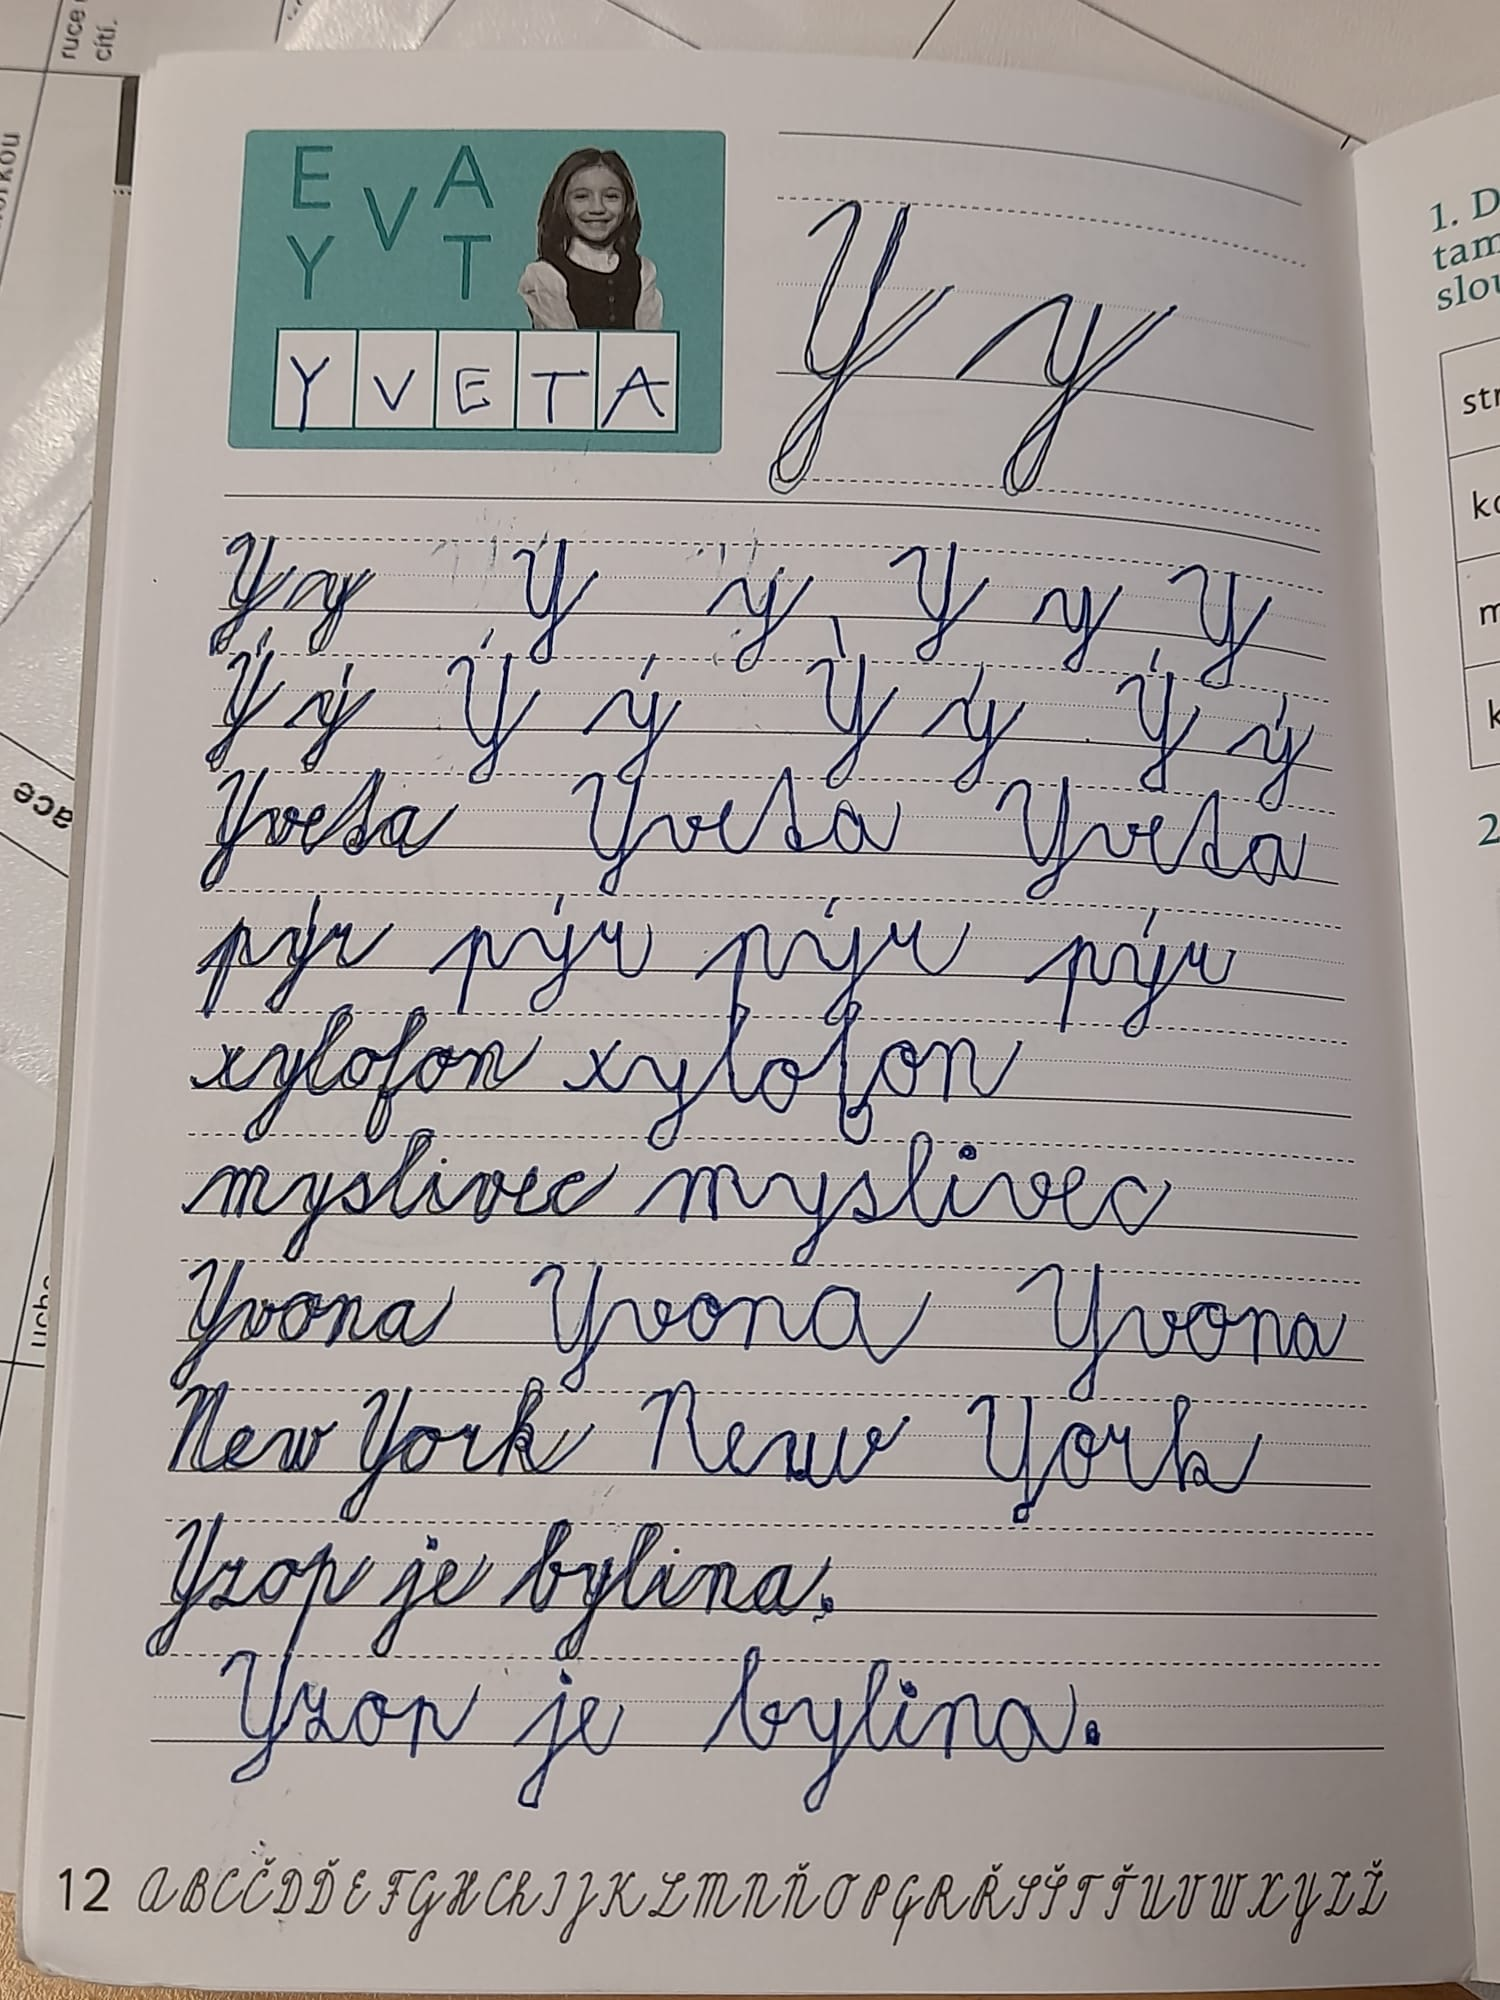 ruce
cítí.
ace
E V A
Y T
Y V E T A
Y y
Y y Y y Y y Y
Ý ý Ý ý Ỳ ý Ý ý
Yveta Yveta Yveta
pýr pýr pýr pýr
xylofon xylofon
myslivec myslivec
Yvona Yvona Yvona
New York New York
Yzop je bylina.
Yzop je bylina.
12 A B C Č D Ď E F G H Ch I J K L M N Ň O P Q R Ř S Š T Ť U V W X Y Z Ž
1. D
tam
slou
str
m
k
2